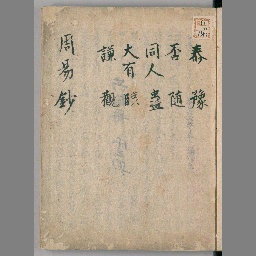 泰 豫
否 随
同人 蠱
大有 臨
謙 觀
周易鈔